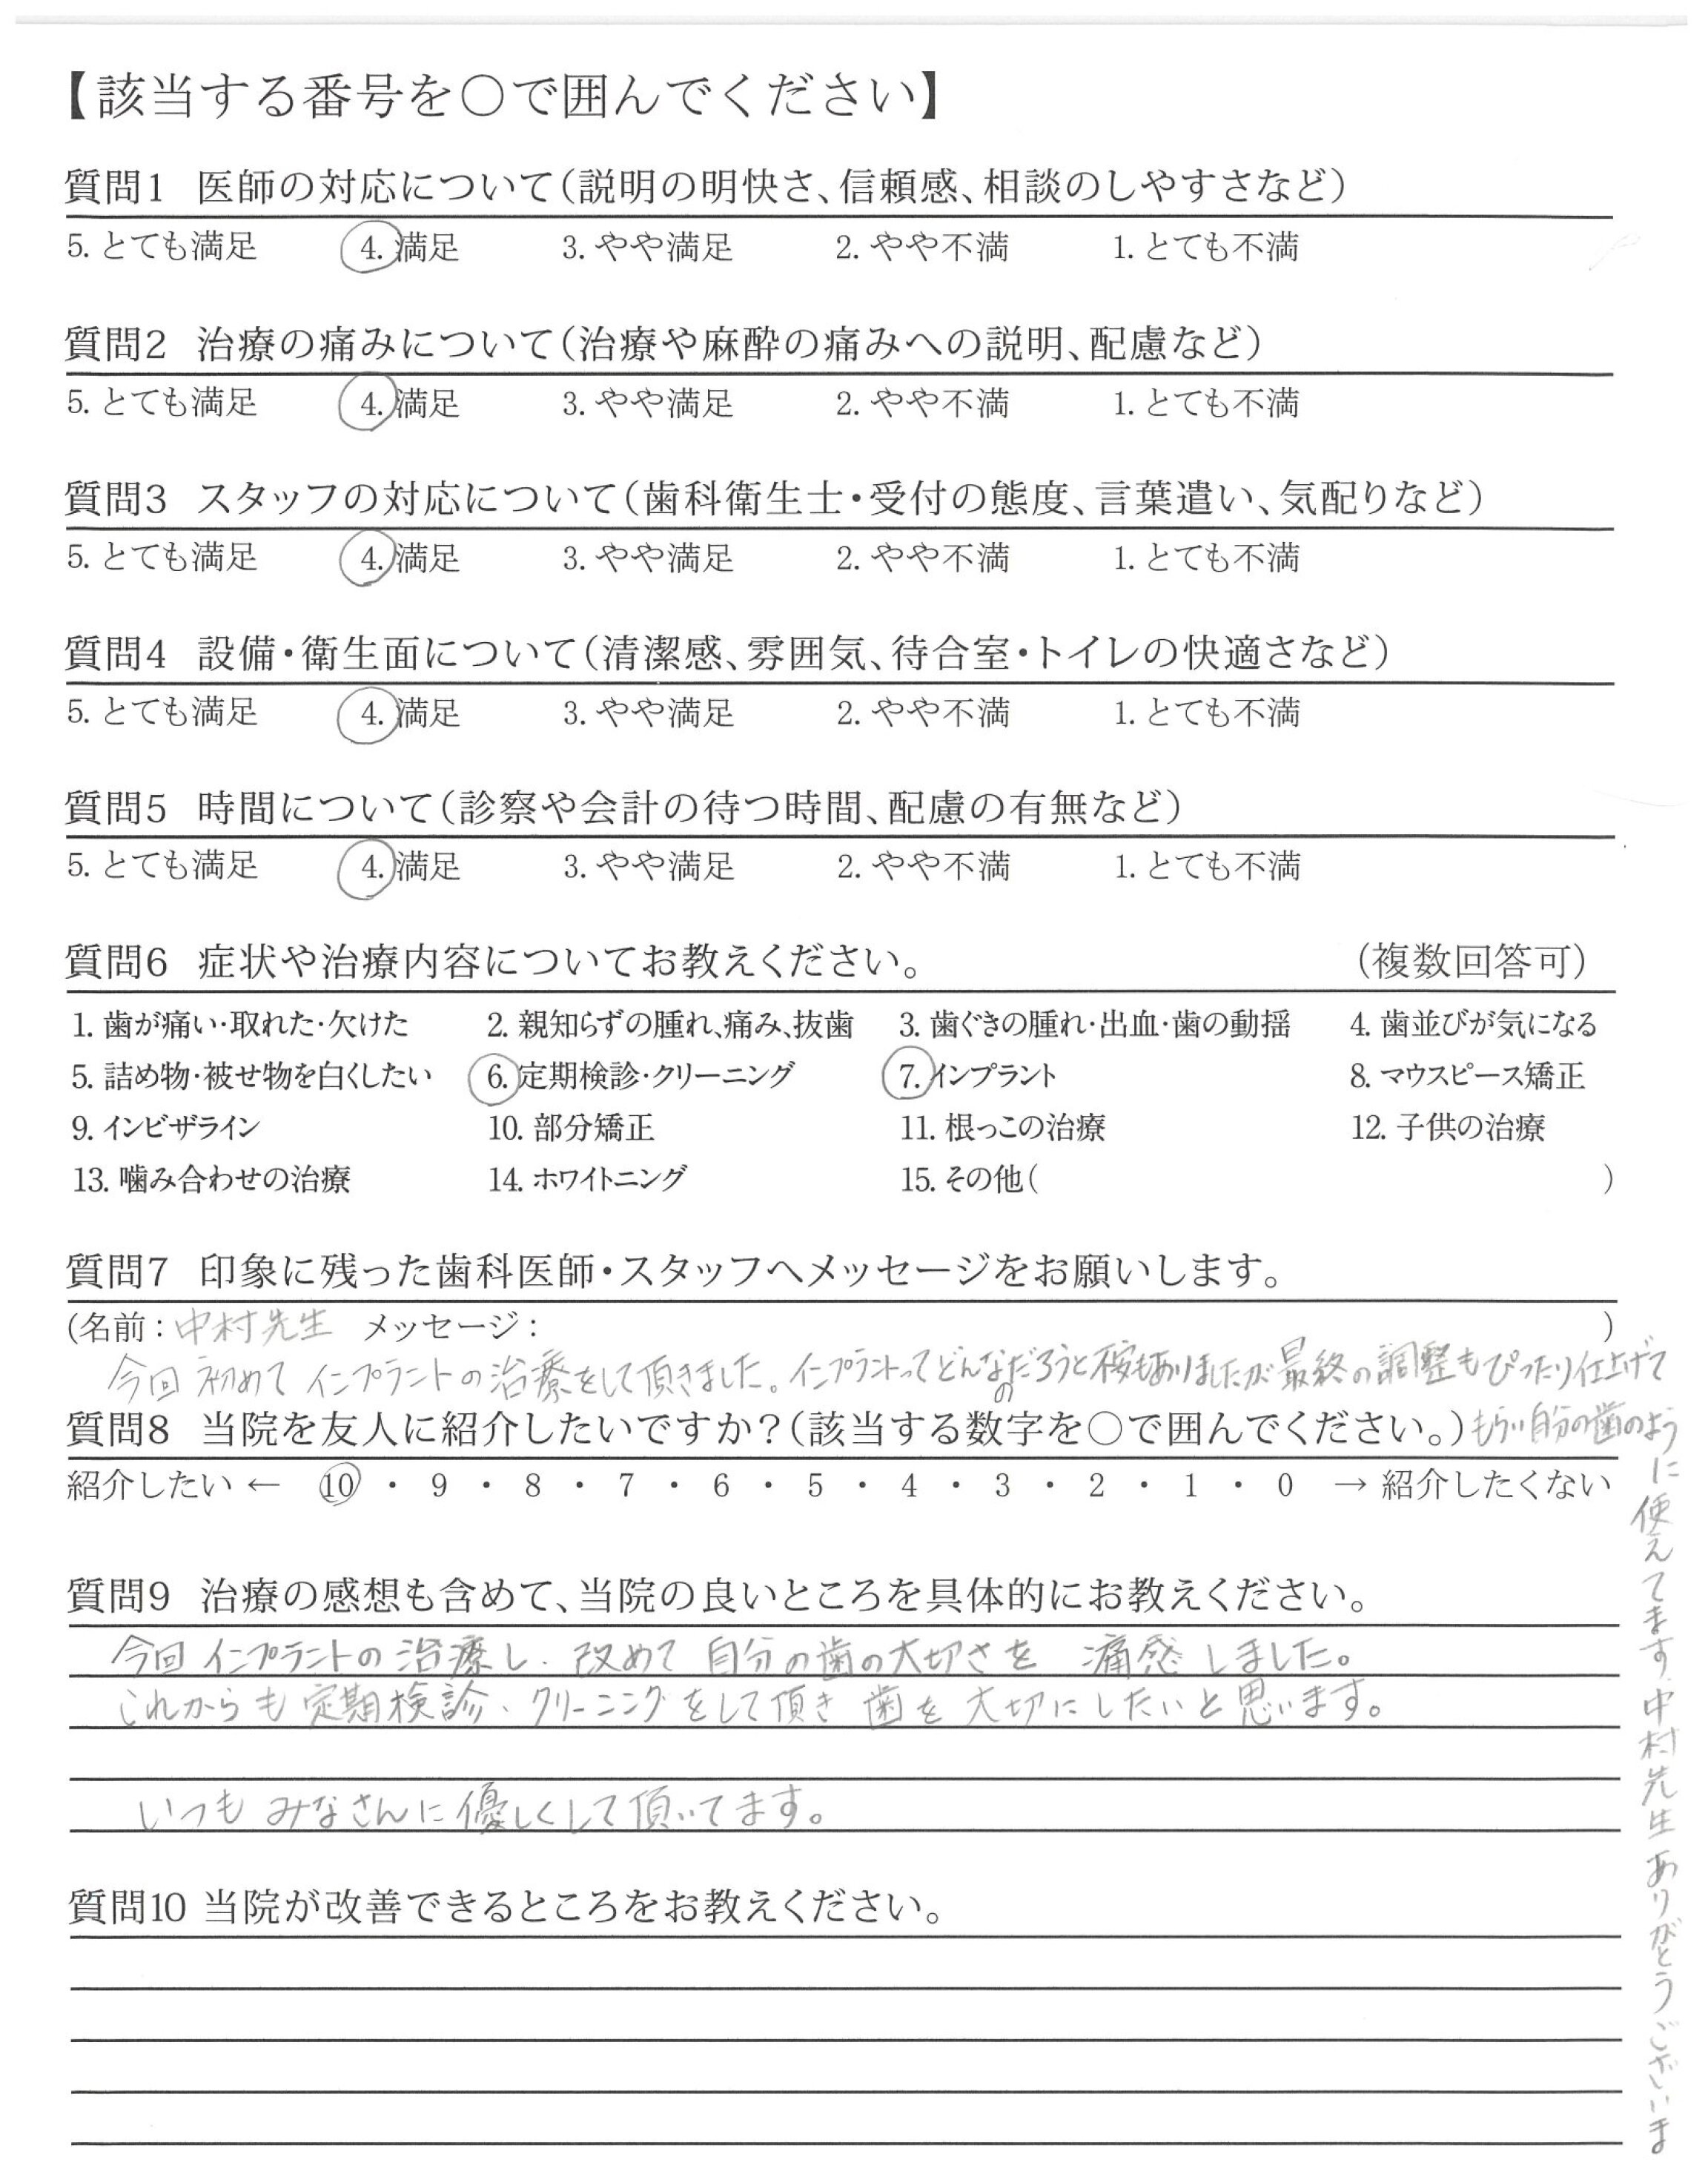 【該当する番号を○で囲んでください】
質問1 医師の対応について(説明の明快さ、信頼感、相談のしやすさなど)
5. とても満足 4. 満足 3. やや満足 2. やや不満 1. とても不満
質問2 治療の痛みについて(治療や麻酔の痛みへの説明、配慮など)
5. とても満足 4. 満足 3. やや満足 2. やや不満 1. とても不満
質問3 スタッフの対応について(歯科衛生士・受付の態度、言葉遣い、気配りなど)
5. とても満足 4. 満足 3. やや満足 2. やや不満 1. とても不満
質問4 設備・衛生面について(清潔感、雰囲気、待合室・トイレの快適さなど)
5. とても満足 4. 満足 3. やや満足 2. やや不満 1. とても不満
質問5 時間について(診察や会計の待つ時間、配慮の有無など)
5. とても満足 4. 満足 3. やや満足 2. やや不満 1. とても不満
質問6 症状や治療内容についてお教えください。 (複数回答可)
1. 歯が痛い・取れた・欠けた 2. 親知らずの腫れ、痛み、抜歯 3. 歯ぐきの腫れ・出血・歯の動揺 4. 歯並びが気になる
5. 詰め物・被せ物を白くしたい 6. 定期検診・クリーニング 7. インプラント 8. マウスピース矯正
9. インビザライン 10. 部分矯正 11. 根っこの治療 12. 子供の治療
13. 噛み合わせの治療 14. ホワイトニング 15. その他( )
質問7 印象に残った歯科医師・スタッフへメッセージをお願いします。
(名前：中村先生 メッセージ： )
今回 初めて インプラントの治療をして頂きました。インプラントってどんなのだろうと不安もありましたが最終の調整もぴったり仕上げて
もらい自分の歯のよう
に使えてます。中村先生ありがとうございま
質問8 当院を友人に紹介したいですか？(該当する数字を○で囲んでください。)
紹介したい ← 10 ・ 9 ・ 8 ・ 7 ・ 6 ・ 5 ・ 4 ・ 3 ・ 2 ・ 1 ・ 0 → 紹介したくない
質問9 治療の感想も含めて、当院の良いところを具体的にお教えください。
今回 インプラントの 治療し、改めて 自分の歯の大切さを 痛感しました。
これからも 定期検診、クリーニングをして頂き 歯を 大切にしたいと思います。
いつも みなさんに優しくして頂いてます。
質問10 当院が改善できるところをお教えください。